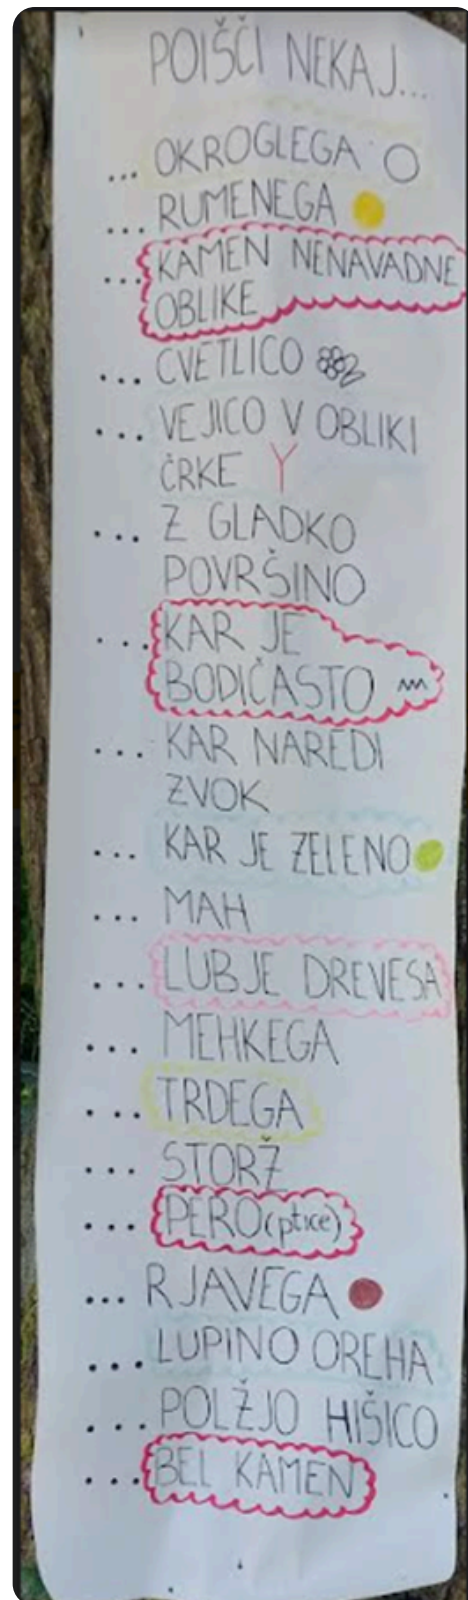 POIŠČI NEKAJ...
... OKROGLEGA
... RUMENEGA
... KAMEN NENAVADNE
OBLIKE
... CVETLICO
... VEJICO V OBLIKI
ČRKE Y
... Z GLADKO
POVRŠINO
... KAR JE
BODIČASTO
... KAR NAREDI
ZVOK
... KAR JE ZELENO
... MAH
... LUBJE DREVESA
... MEHKEGA
... TRDEGA
... STORŽ
... PERO (ptice)
... RJAVEGA
... LUPINO OREHA
... POLŽJO HIŠICO
... BEL KAMEN